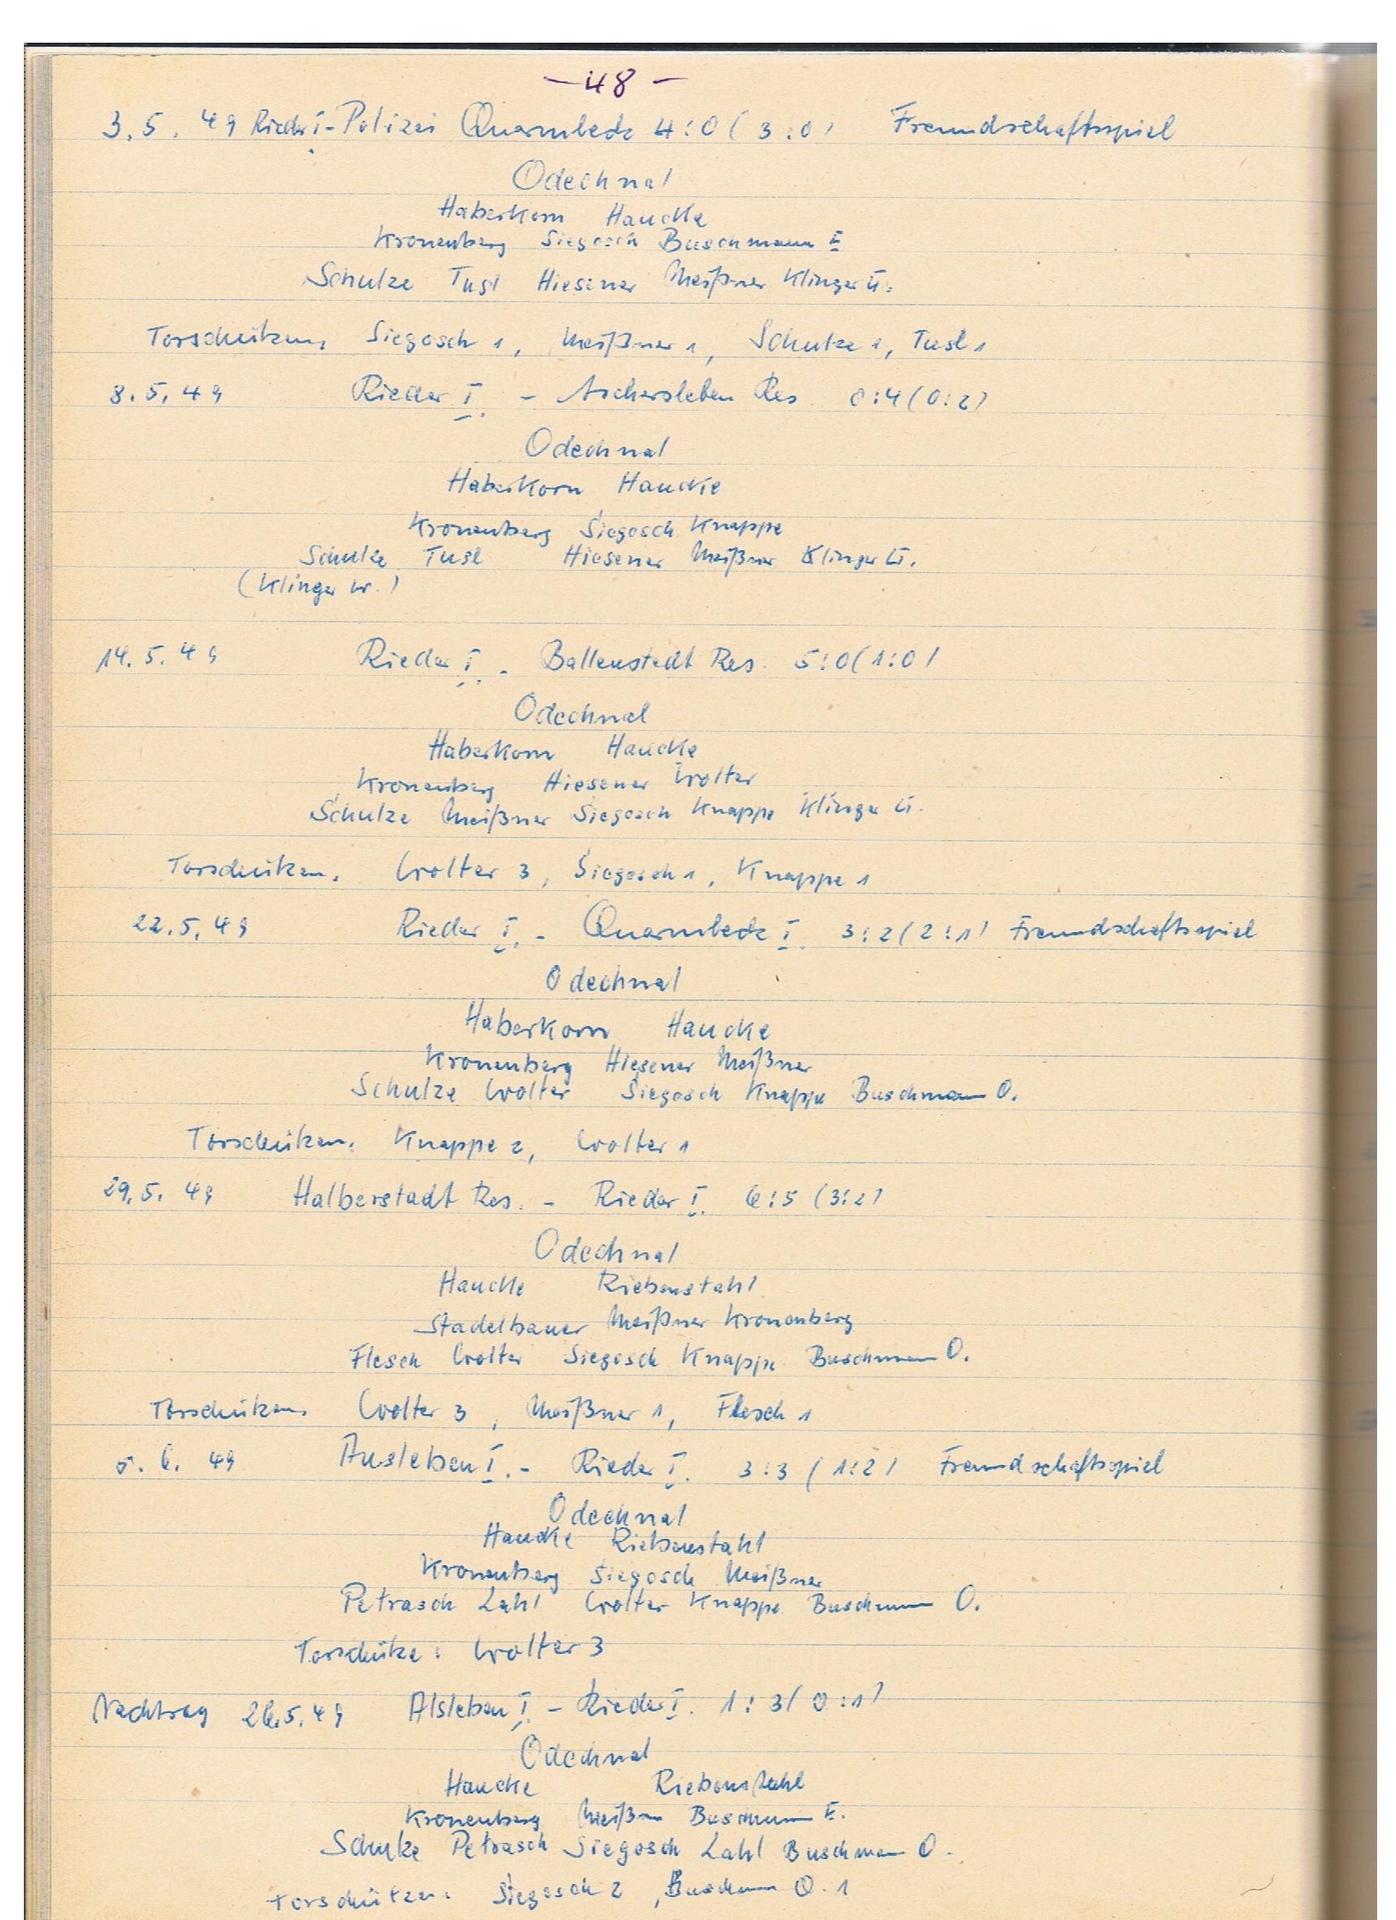 — 48 —
3. 5. 49 Rieder I - Polizei Quarmbeck 4:0 (3:0) Freundschaftsspiel
Odechnal
Haberkorn Haucke
Kronenberg Siegosch Buschmann E
Schulze Tusl Hiesener Meißner Klinger II.
Torschützen, Siegosch 1, Meißner 1, Schulze 1, Tusl 1
8. 5. 49 Rieder I. - Aschersleben Res 0:4 (0:2)
Odechnal
Haberkorn Haucke
Kronenberg Siegosch Knappe
Schulze Tusl Hiesener Meißner Klinger II.
(Klinger W.)
14. 5. 49 Rieder I. - Ballenstedt Res. 5:0 (1:0)
Odechnal
Haberkorn Haucke
Kronenberg Hiesener Wolter
Schulze Meißner Siegosch Knappe Klinger II.
Torschützen. Wolter 3, Siegosch 1, Knappe 1
22. 5. 49 Rieder I. - Quarmbeck I. 3:2 (2:1) Freundschaftsspiel
Odechnal
Haberkorn Haucke
Kronenberg Hiesener Meißner
Schulze Wolter Siegosch Knappe Buschmann O.
Torschützen: Knappe 2, Wolter 1
29. 5. 49 Halberstadt Res. - Rieder I. 6:5 (3:2)
Odechnal
Haucke Riebenstahl
Stadelbauer Meißner Kronenberg
Flesch Wolter Siegosch Knappe Buschmann O.
Torschützen, Wolter 3, Meißner 1, Flesch 1
5. 6. 49 Ausleben I. - Rieder I. 3:3 (1:2) Freundschaftsspiel
Odechnal
Haucke Riebenstahl
Kronenberg Siegosch Meißner
Petrasch Lahl Wolter Knappe Buschmann O.
Torschütze: Wolter 3
Nachtrag 26. 5. 49 Alsleben I. - Rieder I. 1:3 (0:1)
Odechnal
Haucke Riebenstahl
Kronenberg Meißner Buschmann E.
Schulze Petrasch Siegosch Lahl Buschmann O.
Torschützen: Siegosch 2, Buschmann O. 1